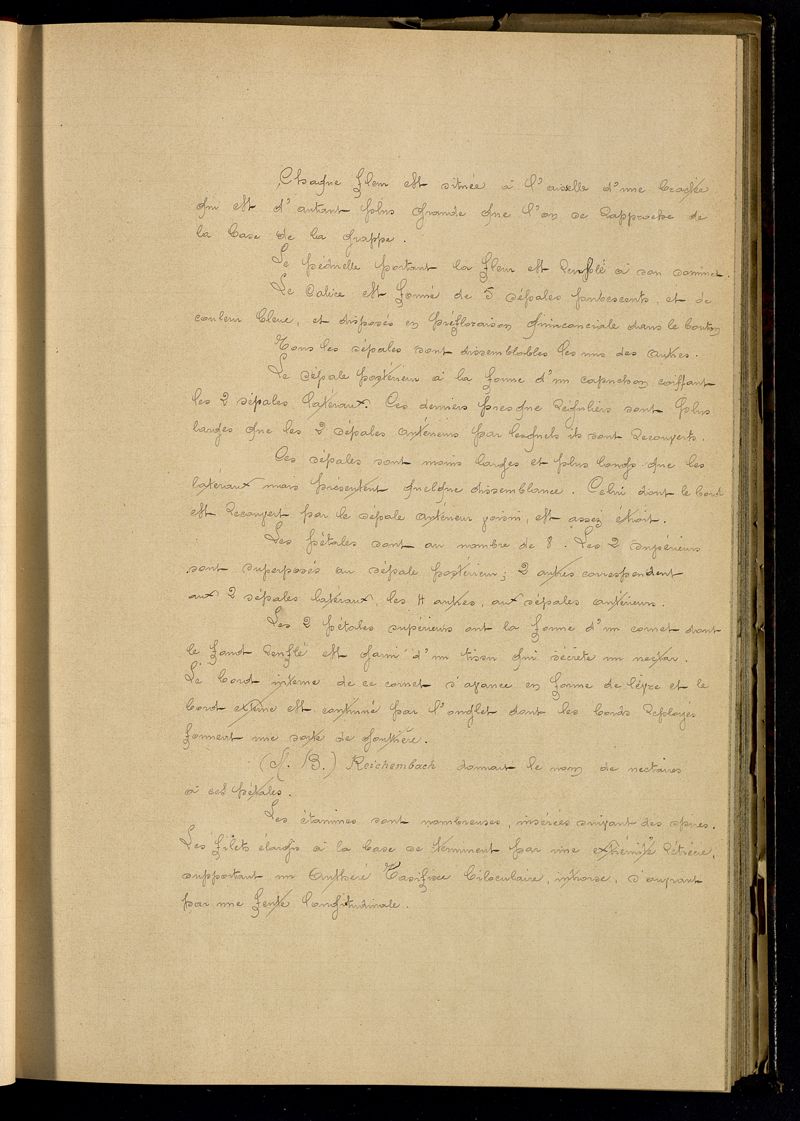 Chaque fleur est située à l'aiselle d'une bractée
qui est d'autant plus grande que l'on se rapproche de
la base de la grappe.
Le pédicelle portant la fleur est renflé à son sommet.
Le calice est formé de 5 sépales pubescents, et de
couleur bleue, et disposés en préfloraison quinconciale dans le bouton
Tous les sépales sont dissemblables les uns des autres.
Le sépale postérieur a la forme d'un capuchon coiffant
les 2 sépales latéraux. Ces derniers presque réguliers sont plus
larges que les 2 sépales antérieurs par lesquels ils sont recouverts.
Ces sépales sont moins larges et plus longs que les
latéraux mais présentent quelque dissemblance. Celui dont le bord
est recouvert par le sépale antérieur voisin, est assez étroit.
Les pétales sont au nombre de 8. Les 2 supérieurs
sont superposés au sépale postérieur; 2 autres correspondent
aux 2 sépales latéraux, les 4 autres, aux sépales antérieurs.
Les 2 pétales supérieurs ont la forme d'un cornet dont
le fond renflé est garni d'un tissu qui sécrète un nectar.
Le bord interne de ce cornet s'avance en forme de lèvre et le
bord externe est continué par l'onglet dont les bords reployés
forment une sorte de gouttière.
(J. B.) Reichembach donnait le nom de nectaires
à ces pétales.
Les étamines sont nombreuses, insérées suivant des spires.
Les filets élargis à la base se terminent par une extrémité rétrécie,
supportant un anthère basifixe biloculaire, introrse, s'ouvrant
par une fente longitudinale.